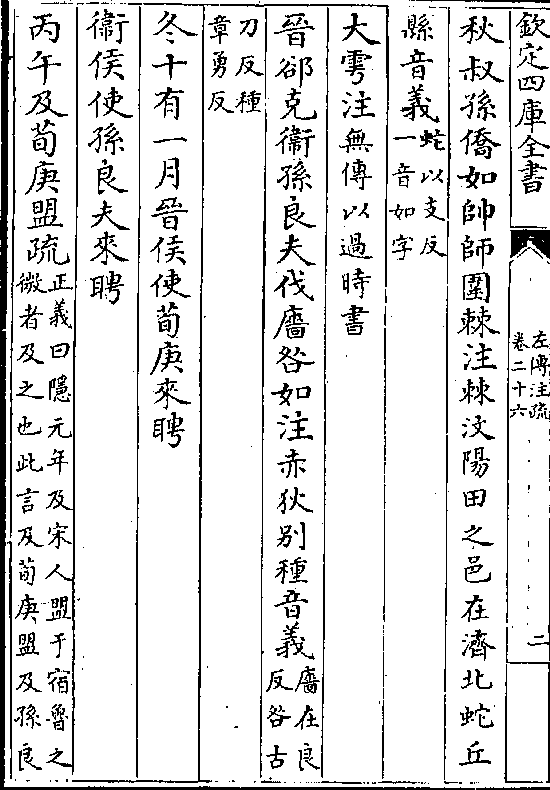 欽定四庫全書
左傳注疏
卷二十六
二
秋叔孫僑如帥師圍棘注棘汶陽田之邑在濟北蛇丘
縣音義蛇以支反
一音如字
大雩注無傳以過時書
晉郤克衞孫良夫伐廧咎如注赤狄別種音義廧在良
反咎古
刀反種
章勇反
冬十有一月晉侯使荀庚來聘
衞侯使孫良夫來聘
丙午及荀庚盟疏正義曰隱元年及宋人盟于宿魯之
微者及之也此言及荀庚盟及孫良